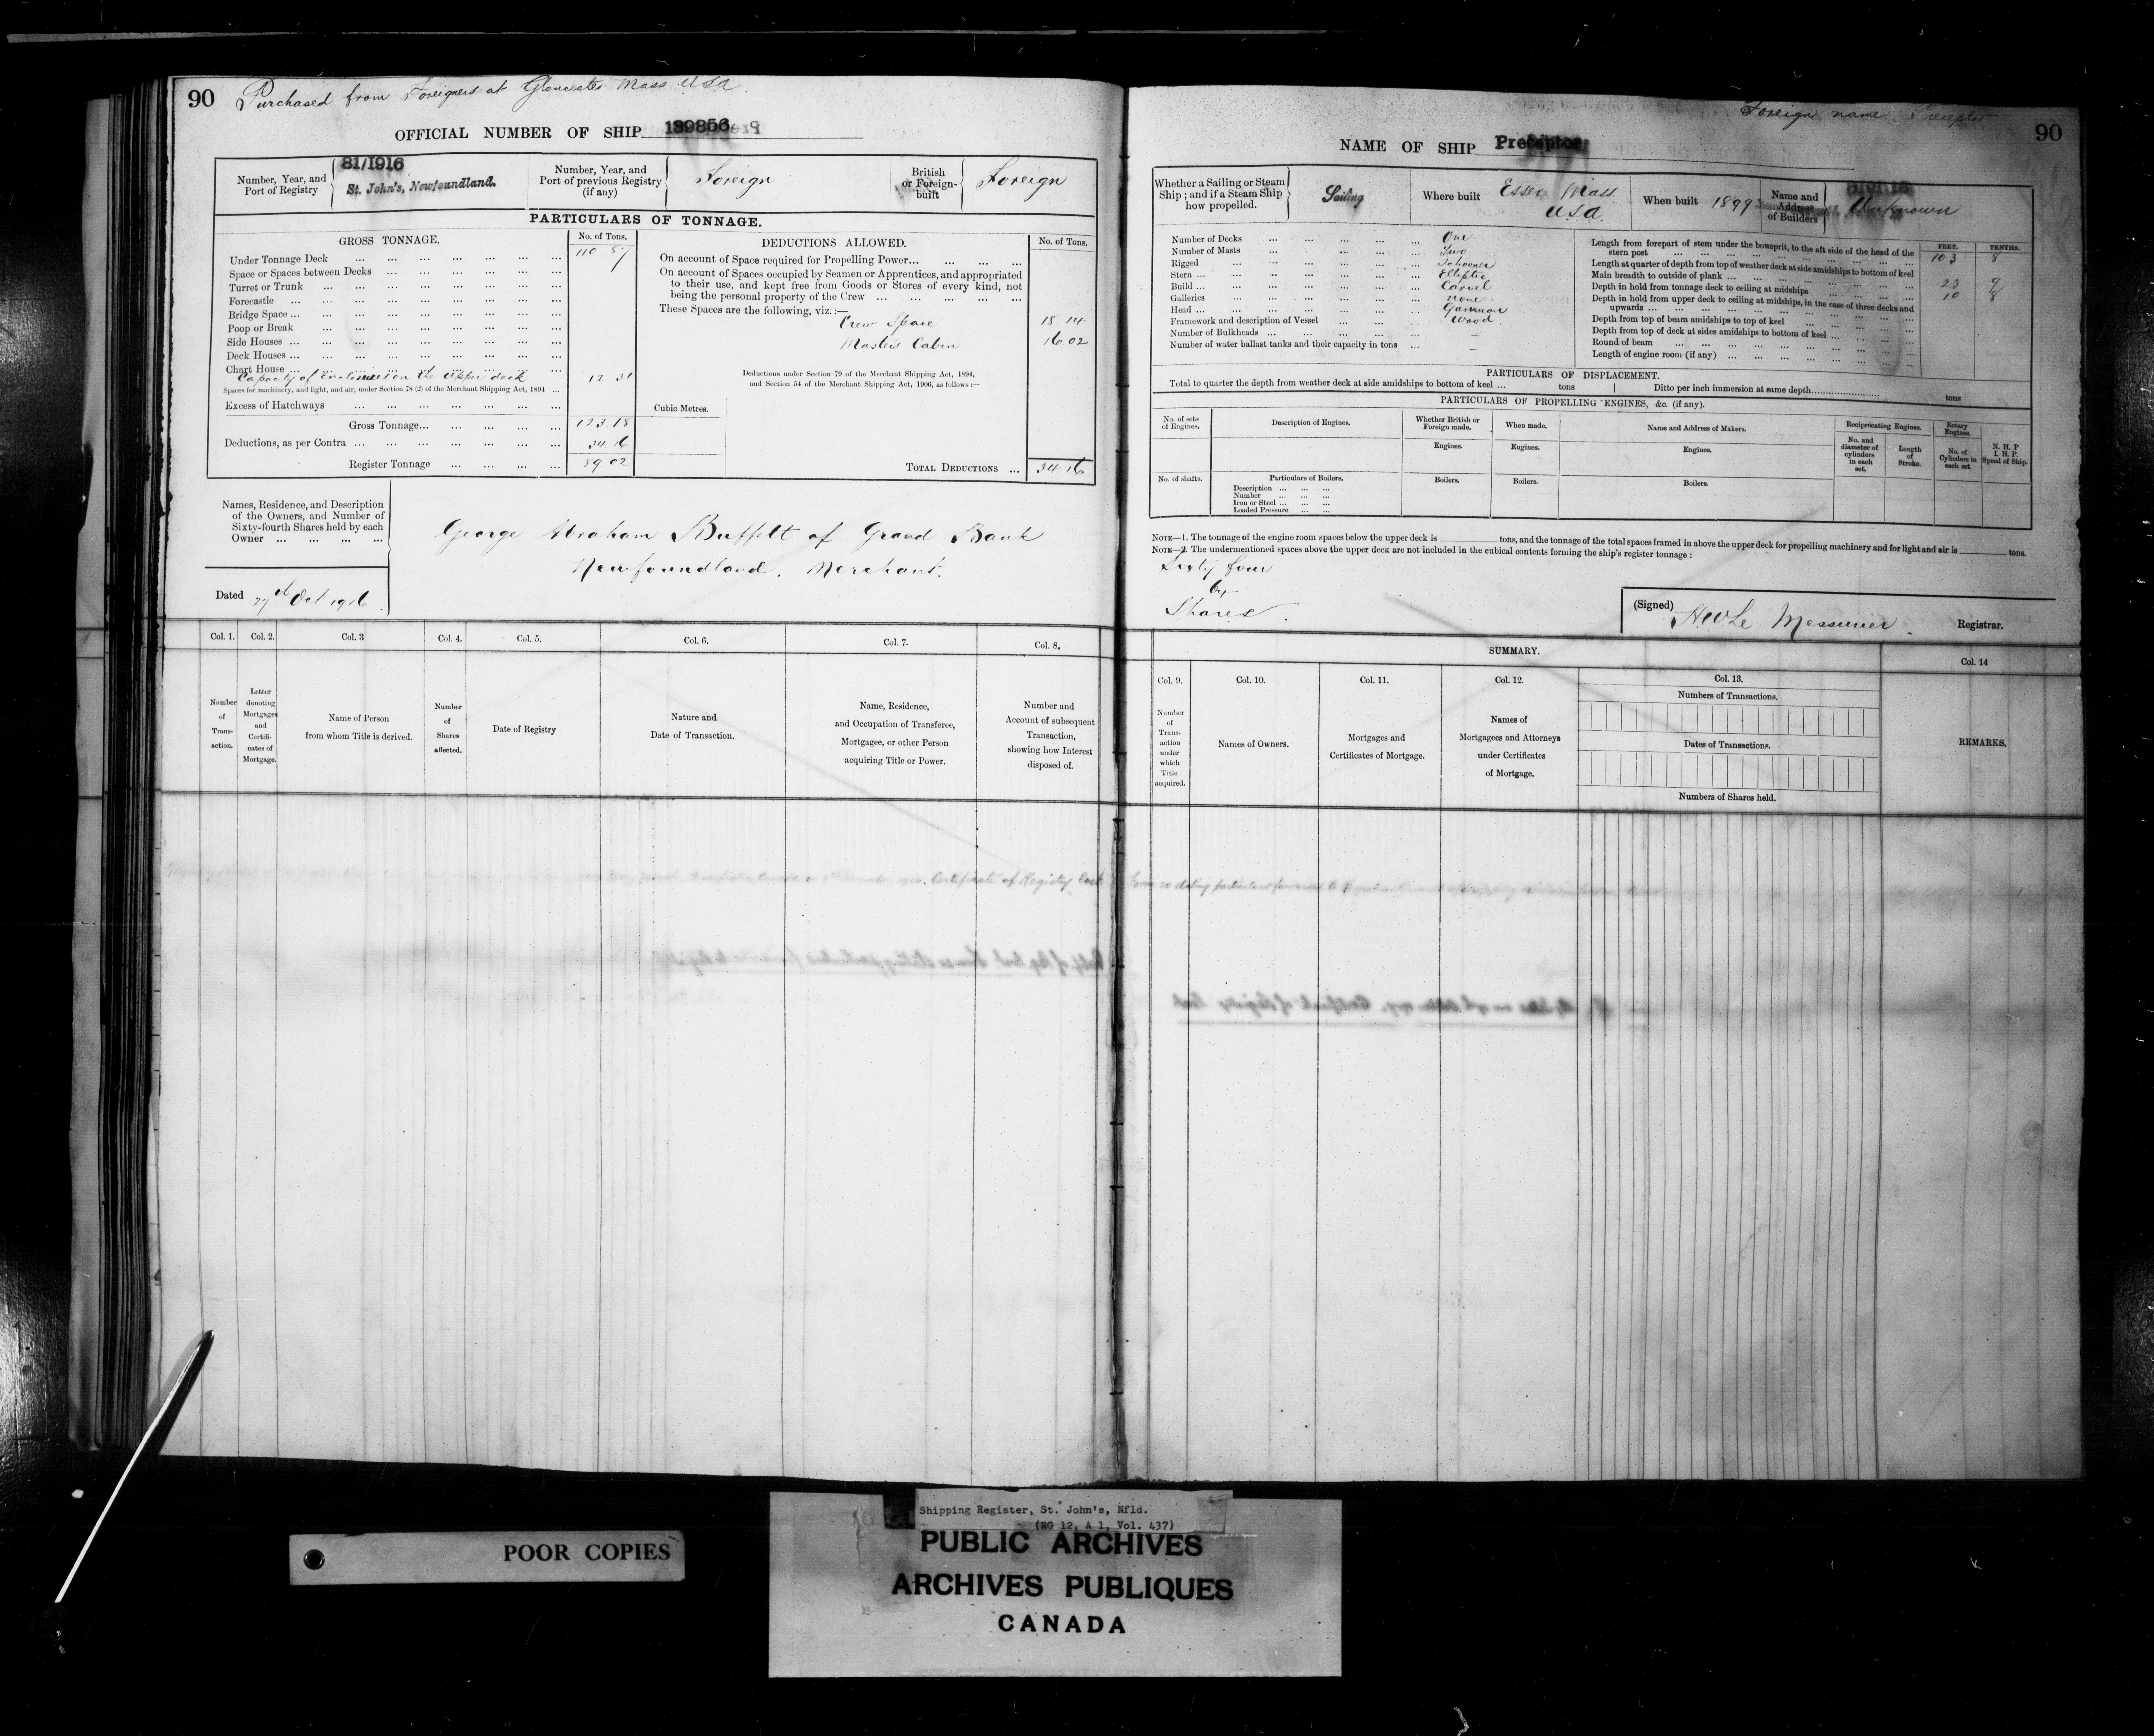 90 Purchased from Foreigners at Gloucester Mass USA.
OFFICIAL NUMBER OF SHIP 139856
Number, Year, and Port of Registry
81/1916
St. John's, Newfoundland.
Number, Year, and Port of previous Registry (if any)
Foreign
British or Foreign-built
Foreign
PARTICULARS OF TONNAGE.
GROSS TONNAGE.
No. of Tons.
Under Tonnage Deck ... 110 87
Space or Spaces between Decks ...
Turret or Trunk ...
Forecastle ...
Bridge Space ...
Poop or Break ...
Side Houses ...
Deck Houses ...
Chart House ...
Capacity of Enclosures on the upper deck 12 31
Spaces for machinery, and light, and air, under Section 78 (2) of the Merchant Shipping Act, 1894 ...
Excess of Hatchways ...
Gross Tonnage... 123 18
Deductions, as per Contra ... 34 16
Register Tonnage ... 89 02
DEDUCTIONS ALLOWED.
No. of Tons.
On account of Space required for Propelling Power...
On account of Spaces occupied by Seamen or Apprentices, and appropriated
to their use, and kept free from Goods or Stores of every kind, not
being the personal property of the Crew ...
These Spaces are the following, viz.:—
Crew Space 18 14
Masters Cabin 16 02
Deductions under Section 79 of the Merchant Shipping Act, 1894,
and Section 54 of the Merchant Shipping Act, 1906, as follows:—
Cubic Metres.
TOTAL DEDUCTIONS ... 34 16
Names, Residence, and Description
of the Owners, and Number of
Sixty-fourth Shares held by each
Owner ...
George Abraham Buffett of Grand Bank
Newfoundland. Merchant.
Dated 27th Oct 1916.
Col. 1. Col. 2. Col. 3 Col. 4. Col. 5. Col. 6. Col. 7. Col. 8.
Number of Transaction.
Letter denoting Mortgages and Certificates of Mortgage.
Name of Person from whom Title is derived.
Number of Shares affected.
Date of Registry
Nature and Date of Transaction.
Name, Residence, and Occupation of Transferee, Mortgagee, or other Person acquiring Title or Power.
Number and Account of subsequent Transaction, showing how Interest disposed of.
Certificate of Registry lost
Foreign name Preceptor
90
NAME OF SHIP Preceptor
Whether a Sailing or Steam Ship; and if a Steam Ship how propelled.
Sailing
Where built
Essex Mass
USA.
When built 1899
Name and Address of Builders
Unknown
Number of Decks ... One
Number of Masts ... Two
Rigged ... Schooner
Stern ... Elliptic
Build ... Carvel
Galleries ... none
Head ... Gammon
Framework and description of Vessel ... Wood.
Number of Bulkheads ... –
Number of water ballast tanks and their capacity in tons ... –
FEET. TENTHS.
Length from forepart of stem under the bowsprit, to the aft side of the head of the
stern post ... 103 8
Length at quarter of depth from top of weather deck at side amidships to bottom of keel
Main breadth to outside of plank ... 23 9
Depth in hold from tonnage deck to ceiling at midships ... 10 8
Depth in hold from upper deck to ceiling at midships, in the case of three decks and
upwards ...
Depth from top of beam amidships to top of keel ...
Depth from top of deck at sides amidships to bottom of keel ...
Round of beam ...
Length of engine room (if any) ...
PARTICULARS OF DISPLACEMENT.
Total to quarter the depth from weather deck at side amidships to bottom of keel ... tons
Ditto per inch immersion at same depth... tons
PARTICULARS OF PROPELLING ENGINES, &c. (if any).
No. of sets of Engines.
Description of Engines.
Whether British or Foreign made.
When made.
Name and Address of Makers.
Reciprocating Engines.
Rotary Engines.
N. H. P
I. H. P.
Speed of Ship.
Engines. Engines. Engines.
No. and diameter of cylinders in each set.
Length of Stroke.
No. of Cylinders in each set.
No. of shafts.
Particulars of Boilers.
Boilers. Boilers. Boilers.
Description ...
Number ...
Iron or Steel ...
Loaded Pressure ...
NOTE—1. The tonnage of the engine room spaces below the upper deck is tons, and the tonnage of the total spaces framed in above the upper deck for propelling machinery and for light and air is tons.
NOTE—2. The undermentioned spaces above the upper deck are not included in the cubical contents forming the ship's register tonnage:
Sixty four
64
Shares.
(Signed) H.W. Le Messurier. Registrar.
SUMMARY.
Col. 14
Col. 9. Col. 10. Col. 11. Col. 12. Col. 13.
Number of Transaction under which Title acquired.
Names of Owners.
Mortgages and Certificates of Mortgage.
Names of Mortgagees and Attorneys under Certificates of Mortgage.
Numbers of Transactions.
Dates of Transactions.
Numbers of Shares held.
REMARKS.
POOR COPIES
Shipping Register, St. John's, Nfld.
(RG 12, A 1, Vol. 437)
PUBLIC ARCHIVES
ARCHIVES PUBLIQUES
CANADA